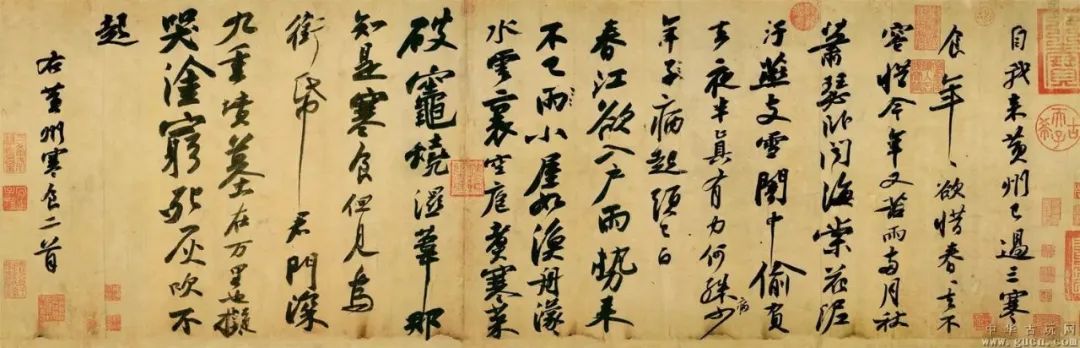 自我来黄州已過三寒
食年〻欲惜春〻去不
容惜今年又苦雨兩月秋
蕭瑟卧聞海棠花泥
汙燕支雪闇中偷負
去夜半真有力何殊病少
年子病起須已白
春江欲入戶雨勢来
不已雨小屋如漁舟濛〻
水雲裏空庖煮寒菜
破竈燒濕葦那
知是寒食但見烏
銜帋君門深
九重墳墓在万里也擬
哭塗窮死灰吹不
起
右黄州寒食二首
古希天子
中华古玩网
www.gucn.com